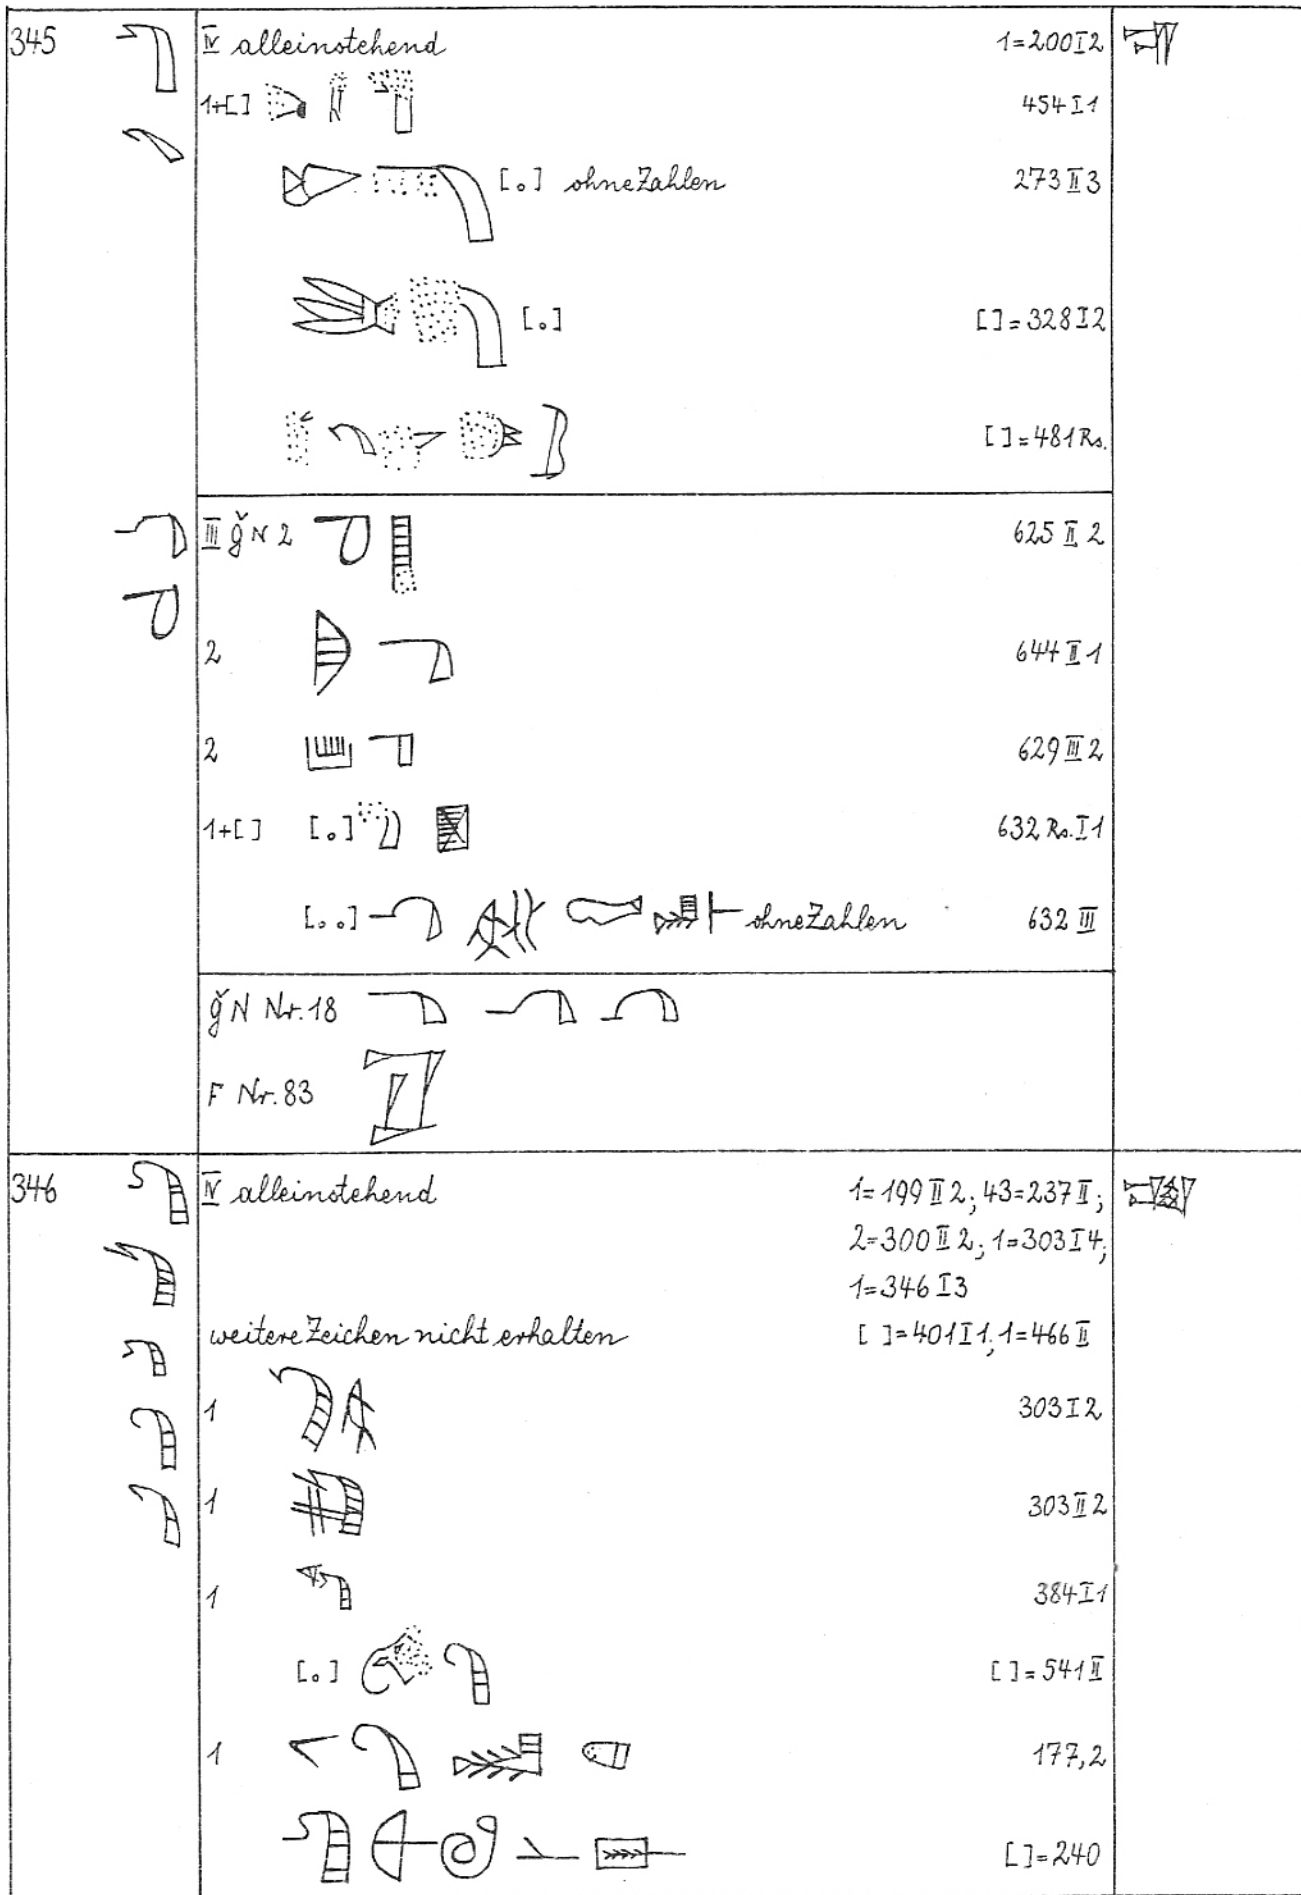 345 IV alleinstehend 1=200 I 2
1+[] 454 I 1
[.] ohne Zahlen 273 II 3
[.] []=328 I 2
[]=481 Rs.
III ǧN 2 625 II 2
2 644 II 1
2 629 III 2
1+[] [.] 632 Rs. I 1
[..] ohne Zahlen 632 III
ǧN Nr. 18
F Nr. 83
346 IV alleinstehend 1=199 II 2; 43=237 II;
2=300 II 2; 1=303 I 4;
1=346 I 3
weitere Zeichen nicht erhalten []=401 I 1; 1=466 II
1 303 I 2
1 303 II 2
1 384 I 1
[.] []=541 II
1 177,2
[]=240